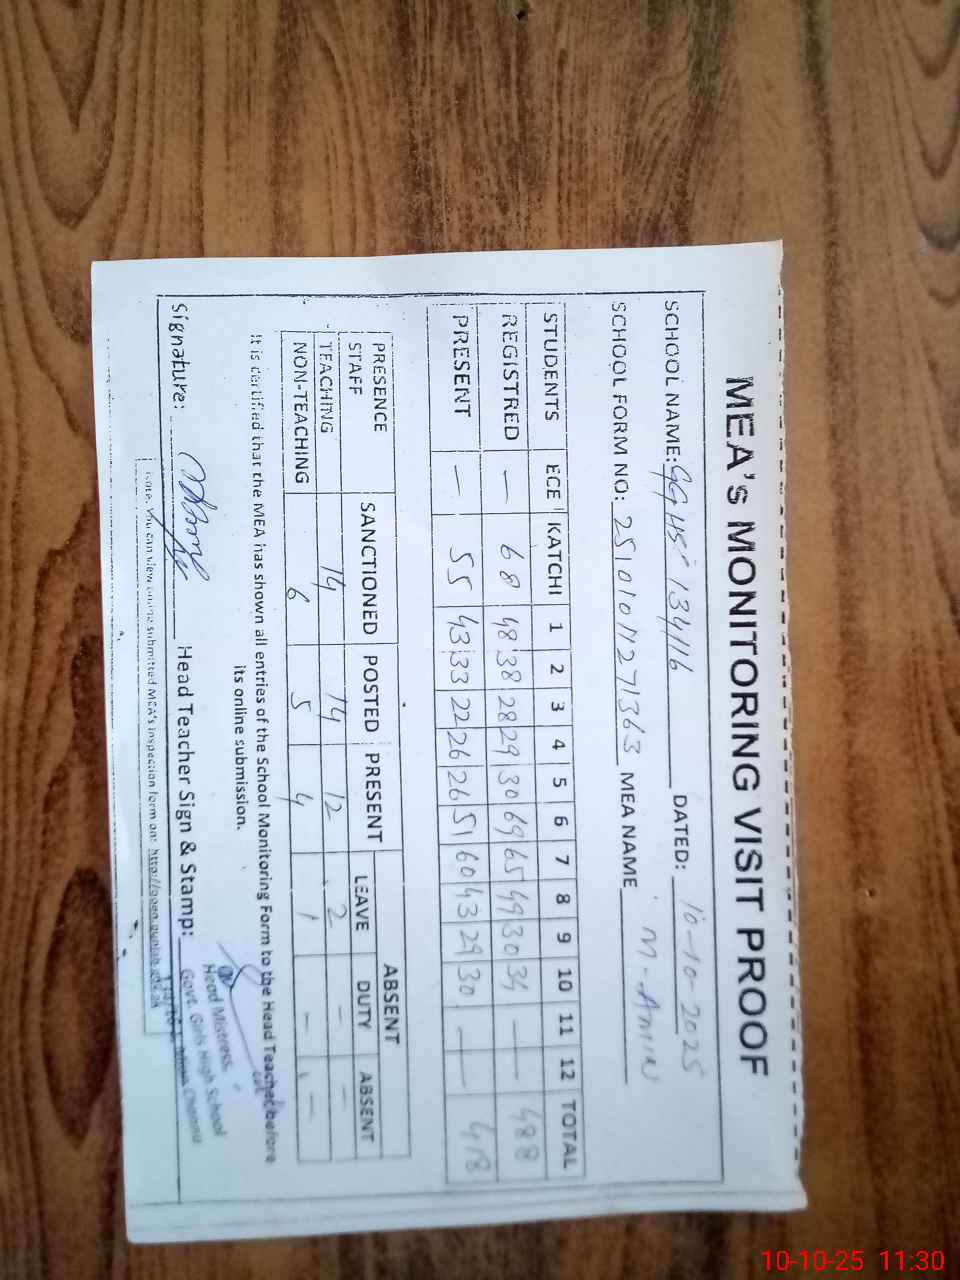 MEA's MONITORING VISIT PROOF
SCHOOL NAME: GGHS 134/16 DATED: 10-10-2025
SCHOOL FORM NO: MEA NAME M-Amin
STUDENTS ECE KATCHI 1 2 3 4 5 6 7 8 9 10 11 12 TOTAL
REGISTRED — 68 48 38 28 29 30 69 65 49 30 34 — — 488
PRESENT — 55 43 33 22 26 26 51 60 43 29 30 — — 418
PRESENCE STAFF SANCTIONED POSTED PRESENT ABSENT
LEAVE DUTY ABSENT
TEACHING 14 14 12 2 — —
NON-TEACHING 6 5 4 1 — —
It is certified that the MEA has shown all entries of the School Monitoring Form to the Head Teacher before
its online submission.
Signature: Head Teacher Sign & Stamp:
Head Mistress
Govt. Girls High School
Channu
Note. You can view online submitted MEA's inspection form on: http://open.punjab.gov.pk
10-10-25 11:30